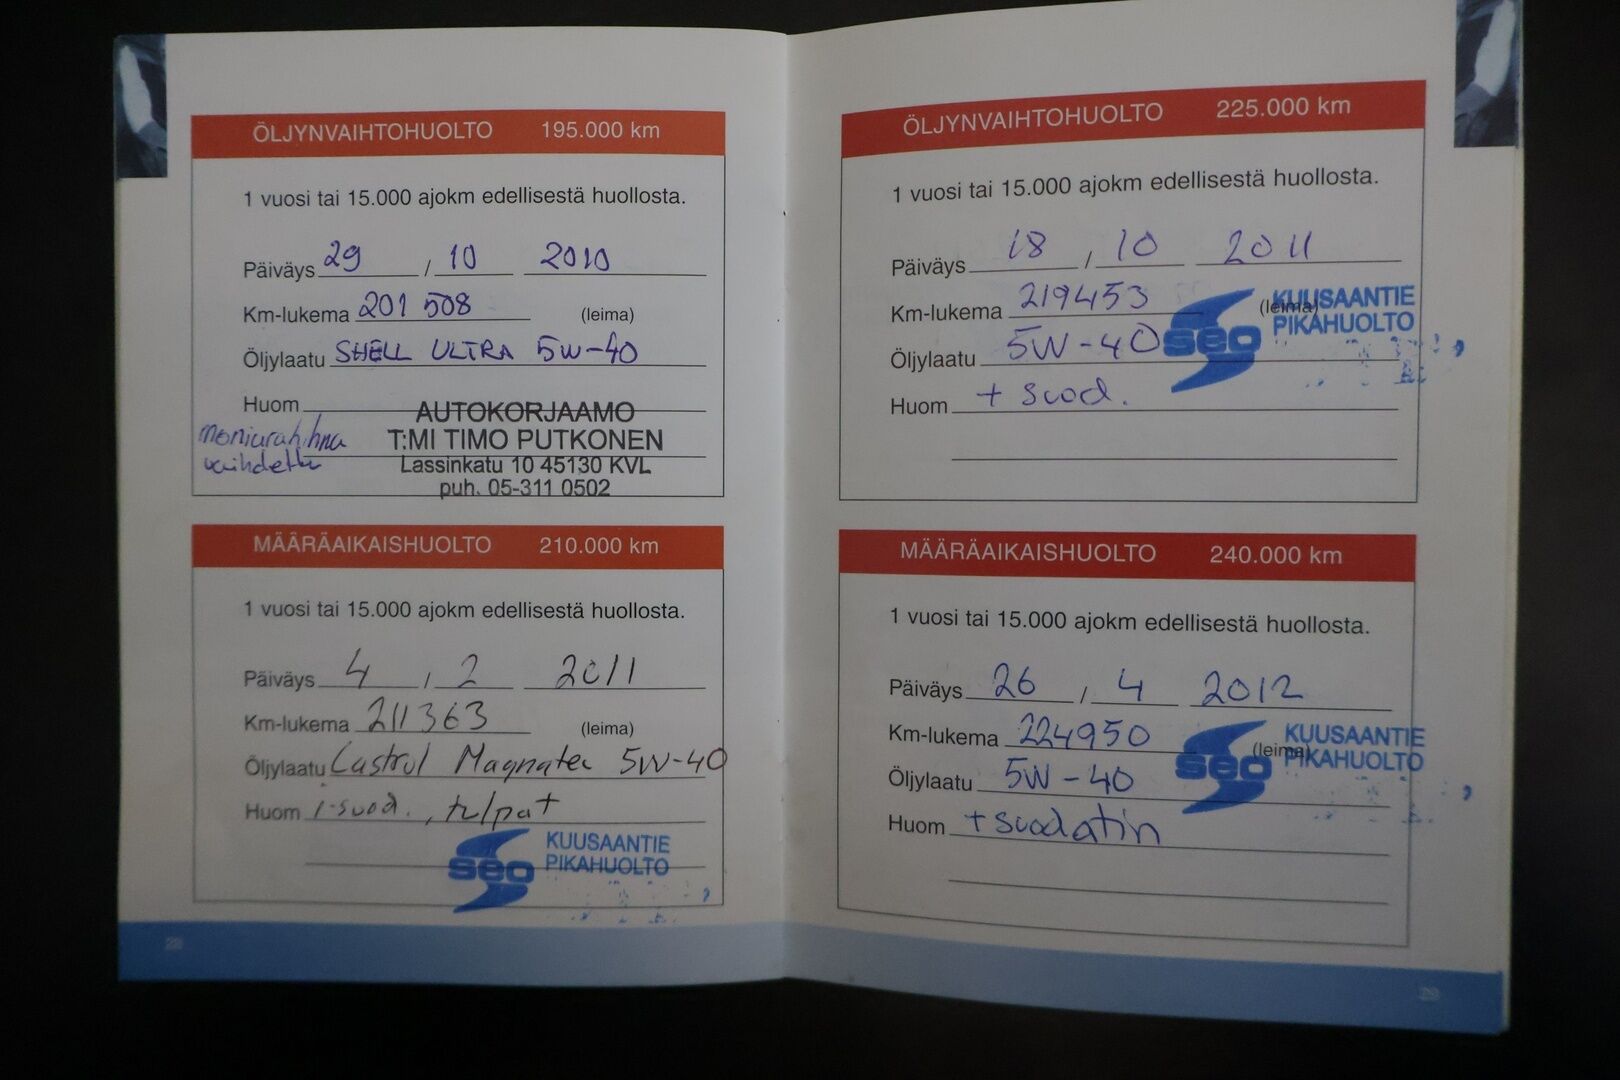 ÖLJYNVAIHTOHUOLTO 195.000 km
1 vuosi tai 15.000 ajokm edellisestä huollosta.
Päiväys 29 / 10 2010
Km-lukema 201 508 (leima)
Öljylaatu SHELL ULTRA 5W-40
Huom
moniurahihna
vaihdettu
AUTOKORJAAMO
T:MI TIMO PUTKONEN
Lassinkatu 10 45130 KVL
puh. 05-311 0502
MÄÄRÄAIKAISHUOLTO 210.000 km
1 vuosi tai 15.000 ajokm edellisestä huollosta.
Päiväys 4 / 2 2011
Km-lukema 211363 (leima)
Öljylaatu Castrol Magnatec 5W-40
Huom i-suod., tulpat
seo KUUSAANTIE
PIKAHUOLTO
28
ÖLJYNVAIHTOHUOLTO 225.000 km
1 vuosi tai 15.000 ajokm edellisestä huollosta.
Päiväys 18 / 10 2011
Km-lukema 219453 (leima)
Öljylaatu 5W-40
Huom + suod.
seo KUUSAANTIE
PIKAHUOLTO
MÄÄRÄAIKAISHUOLTO 240.000 km
1 vuosi tai 15.000 ajokm edellisestä huollosta.
Päiväys 26 / 4 2012
Km-lukema 224950 (leima)
Öljylaatu 5W-40
Huom + suodatin
seo KUUSAANTIE
PIKAHUOLTO
29